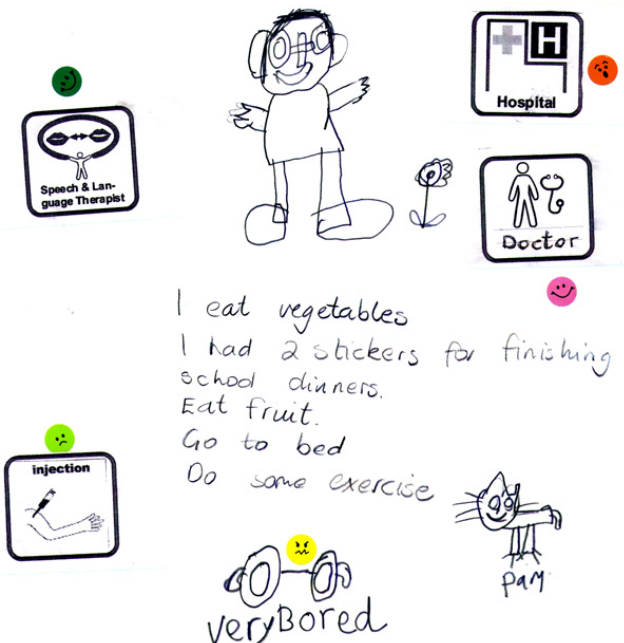 H
Hospital
Speech & Lan-
guage Therapist
Doctor
I eat vegetables
I had 2 stickers for finishing
school dinners.
Eat fruit.
Go to bed
Do some exercise
injection
pam
very Bored